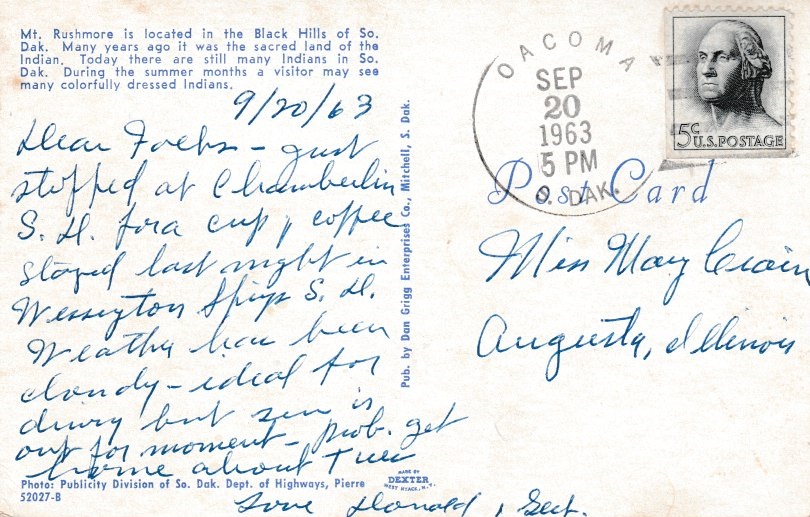 Mt. Rushmore is located in the Black Hills of So.
Dak. Many years ago it was the sacred land of the
Indian. Today there are still many Indians in So.
Dak. During the summer months a visitor may see
many colorfully dressed Indians.
9/20/63
Dear Folks - just
stopped at Chamberlin
S. D. for a cup of coffee
stayed last night in
Wessington Spgs S. D.
Weather has been
cloudy - ideal for
driving but sun is
out for moment - prob. get
home about Tues
Love Donald,
Photo: Publicity Division of So. Dak. Dept. of Highways, Pierre
52027-B
Pub. by Dan Grigg Enterprises Co., Mitchell, S. Dak.
MADE BY
DEXTER
WEST NYACK, N.Y.
OACOMA
SEP
20
1963
5 PM
S. DAK.
5¢
U.S. POSTAGE
Post Card
Miss Mary Crain
Augusta, Illinois